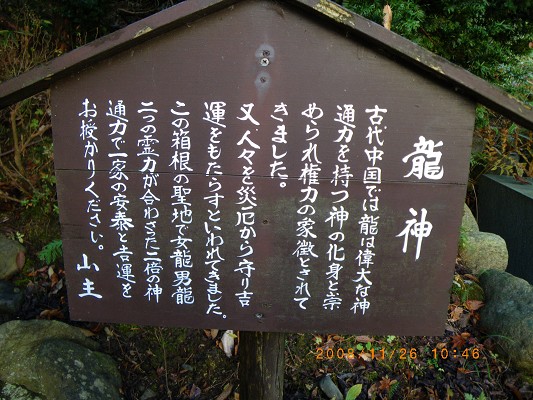 龍神
古代中国では龍は偉大な神
通力を持つ神の化身と崇
められ権力の象徴とされて
きました。
又、人々を災厄から守り吉
運をもたらすといわれてきました。
この箱根の聖地で女龍男龍
二つの霊力が合わさった二倍の神
通力で一家の安泰と吉運を
お授かりください。山主
2008 11/26 10:46